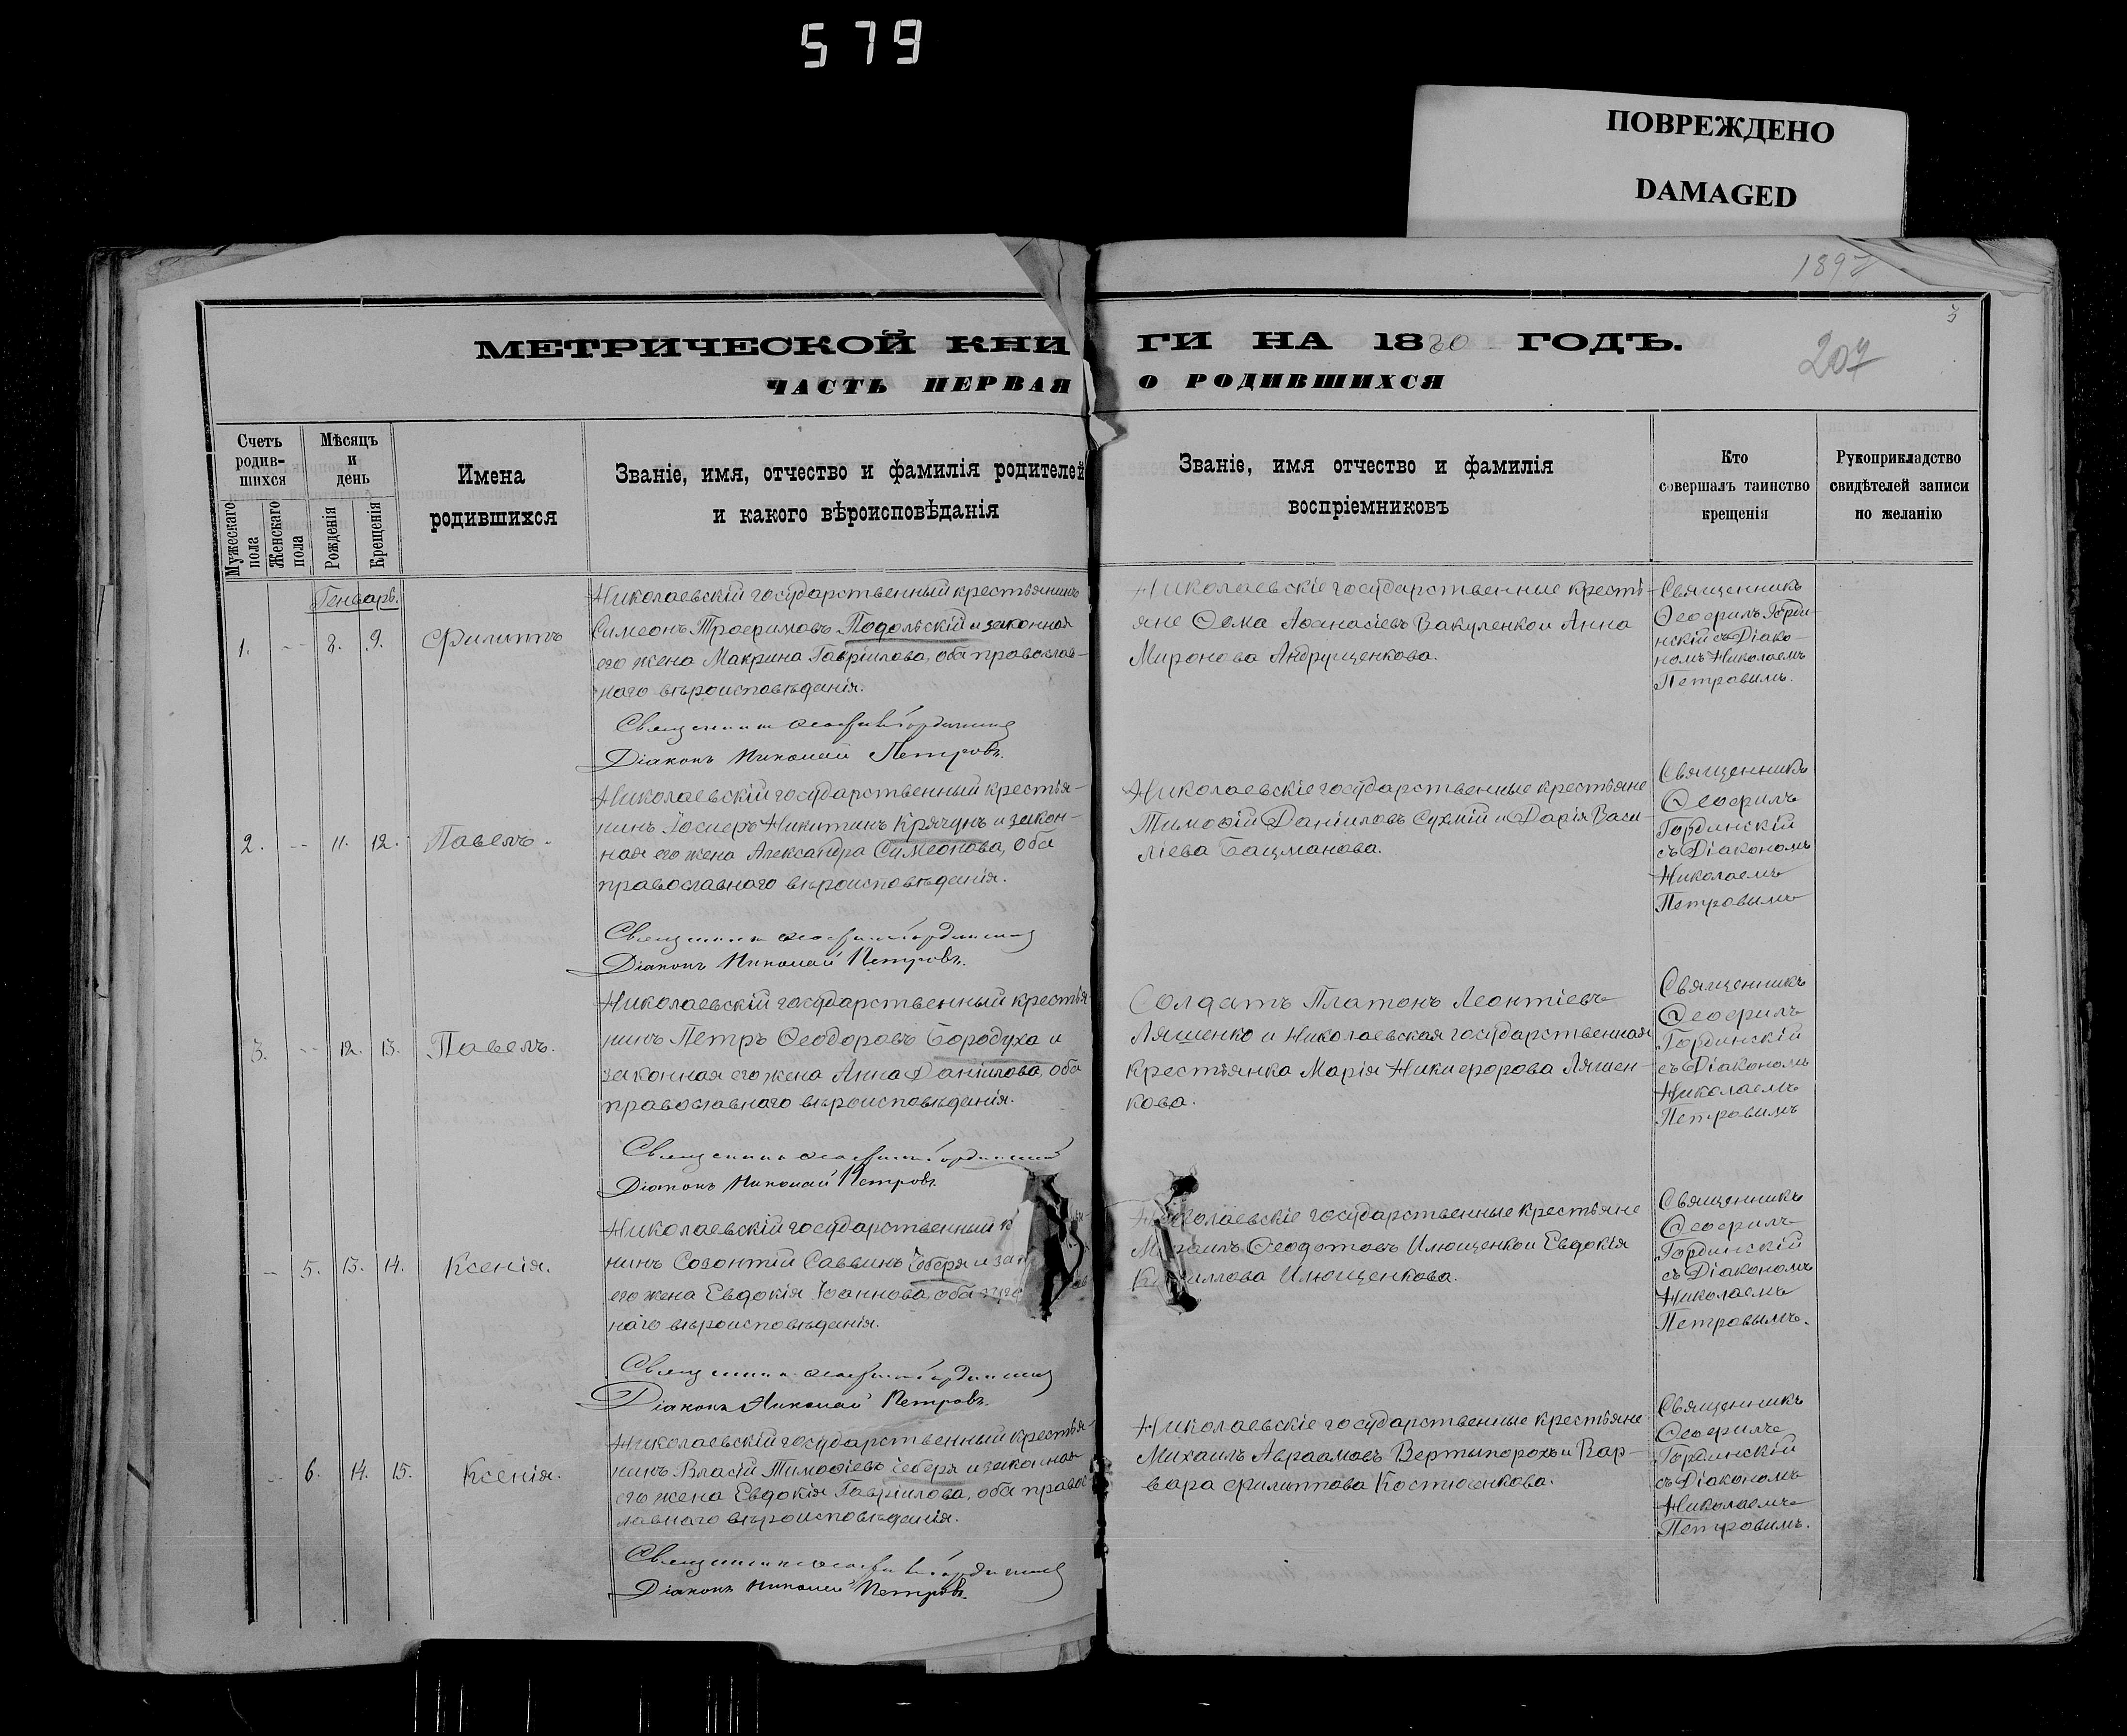 579
ПОВРЕЖДЕНО
DAMAGED
3
207
МЕТРИЧЕСКОЙ КНИГИ НА 1880 ГОДЪ.
ЧАСТЬ ПЕРВАЯ О РОДИВШИХСЯ
Счетъ родив-шихся
Мужескаго пола
Женскаго пола
Мѣсяцъ и день
Рожденія
Крещенія
Имена родившихся
Званіе, имя, отчество и фамилія родителей
и какого вѣроисповѣданія
Званіе, имя отчество и фамилія
воспріемниковъ
Кто
совершалъ таинство
крещенія
Рукоприкладство
свидѣтелей записи
по желанію
Генварь.
1. -- 8. 9. Филиппъ
Николаевскій государственный крестьянинъ
Симеонъ Трофимовъ Подольскій и законная
его жена Макрина Гавріилова, оба православ-
наго вѣроисповѣданія.
Діаконъ Николай Петровъ.
Николаевскіе государственные кресть-
яне Ѳома Аѳанасіевъ Вакуленко и Анна
Миронова Андрущенкова.
Священникъ
Ѳеофилъ Горди-
нскій съ Діако-
номъ Николаемъ
Петровымъ.
2. -- 11. 12. Павелъ.
Николаевскій государственный крестья-
нинъ Іосифъ Никитинъ Крячунъ и закон-
ная его жена Александра Симеонова, оба
православнаго вѣроисповѣданія.
Діаконъ Николай Петровъ.
Николаевскіе государственные крестьяне
Тимоѳій Даніиловъ Сухмій и Дарія Васи-
ліева Бацманова.
Священникъ
Ѳеофилъ
Гординскій
съ Діакономъ
Николаемъ
Петровымъ
3. -- 12. 13. Павелъ.
Николаевскій государственный крестья
нинъ Петръ Ѳеодоровъ Бородуха и
законная его жена Анна Даніилова, оба
православнаго вѣроисповѣданія.
Діаконъ Николай Петровъ.
Солдатъ Платонъ Леонтіевъ
Ляшенко и Николаевская государственная
крестьянка Марія Никифорова Ляшен-
кова.
Священникъ
Ѳеофилъ
Гординскій
съ Діакономъ
Николаемъ
Петровымъ
-- 5. 13. 14. Ксенія.
Николаевскій государственный к
нинъ Созонтій Саввинъ Чеберя и зак
его жена Евдокія Іоаннова, оба пра
наго вѣроисповѣданія.
Діаконъ Николай Петровъ.
Николаевскіе государственные крестьяне
Михаилъ Ѳеодотовъ Илющенко и Евдокія
Кириллова Илющенкова.
Священникъ
Ѳеофилъ
Гординскій
съ Діакономъ
Николаемъ
Петровымъ.
-- 6. 14. 15. Ксенія.
Николаевскій государственный крестья-
нинъ Власій Тимоѳіевъ Чеберя и законная
его жена Евдокія Гавріилова, оба правос
лавнаго вѣроисповѣданія.
Діаконъ Николай Петровъ.
Николаевскіе государственные крестьяне
Михаилъ Авраамовъ Вертыпорохъ и Вар-
вара Филиппова Костюченкова.
Священникъ
Ѳеофилъ
Гординскій
съ Діакономъ
Николаемъ
Петровымъ.